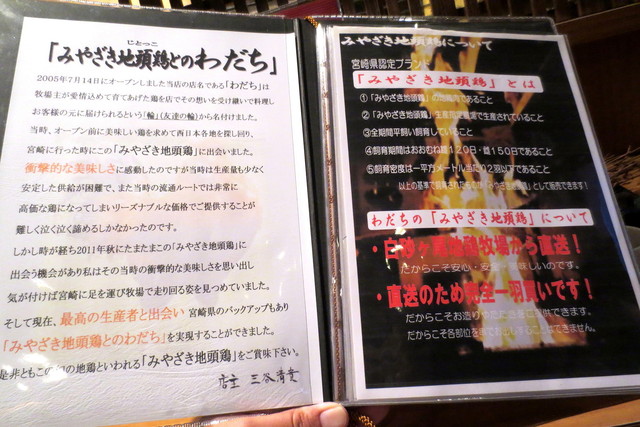 じとっこ
「みやざき地頭鶏とのわだち」
2005年7月14にオープンしました当店の店名である「わだち」は
牧場主が愛情込めて育てあげた鶏を店でその想いを受け継いで料理し
お客様の元に届けられるという「輪」(友達の輪)から名付けました。
当時、オープン前に美味しい鶏を求めて西日本各地を探し回り、
宮崎に行った時にこの「みやざき地頭鶏」に出会いました。
衝撃的な美味しさに感動したのですが当時は生産量も少なく
安定した供給が困難で、また当時の流通ルートでは非常に
高価な鶏になってしまいリーズナブルな価格でご提供することが
難しく泣く泣く諦めるしかなかったのです。
しかし時が経ち2011年秋にたまたまこの「みやざき地頭鶏」に
出会う機会があり私はその当時の衝撃的な美味しさを思い出し
気が付けば宮崎に足を運び牧場で走り回る姿を見つめていました。
そして現在、最高の生産者と出会い 宮崎県のバックアップもあり
「みやざき地頭鶏とのわだち」を実現することができました。
是非ともこの幻の地鶏といわれる「みやざき地頭鶏」をご賞味下さい。
店主 三谷
みやざき地頭鶏について
宮崎県認定ブランド
「みやざき地頭鶏」とは
①「みやざき地頭鶏」の
であること
②「みやざき地頭鶏」生産指定農場で生産されていること
③全期間平飼い飼育していること
④飼育期間はおおむね雄120日・雌150日であること
⑤飼育密度は一平方メートル当たり2羽以下であること
以上の基準で飼育されたものが「みやざき地頭鶏」として販売できます!
わだちの「みやざき地頭鶏」について
牧場から直送!
だからこそ安心・安全・美味しいのです。
・直送のため完全一羽買いです!
だからこそお造りや
ご提供できます。
だからこそ各部位を
することができません。